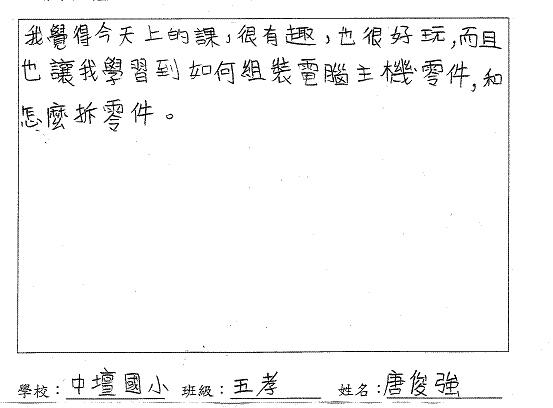 我覺得今天上的課，很有趣，也很好玩，而且
也讓我學習到如何組裝電腦主機零件，和
怎麼拆零件。
學校：中壇國小 班級：五孝 姓名：唐俊強